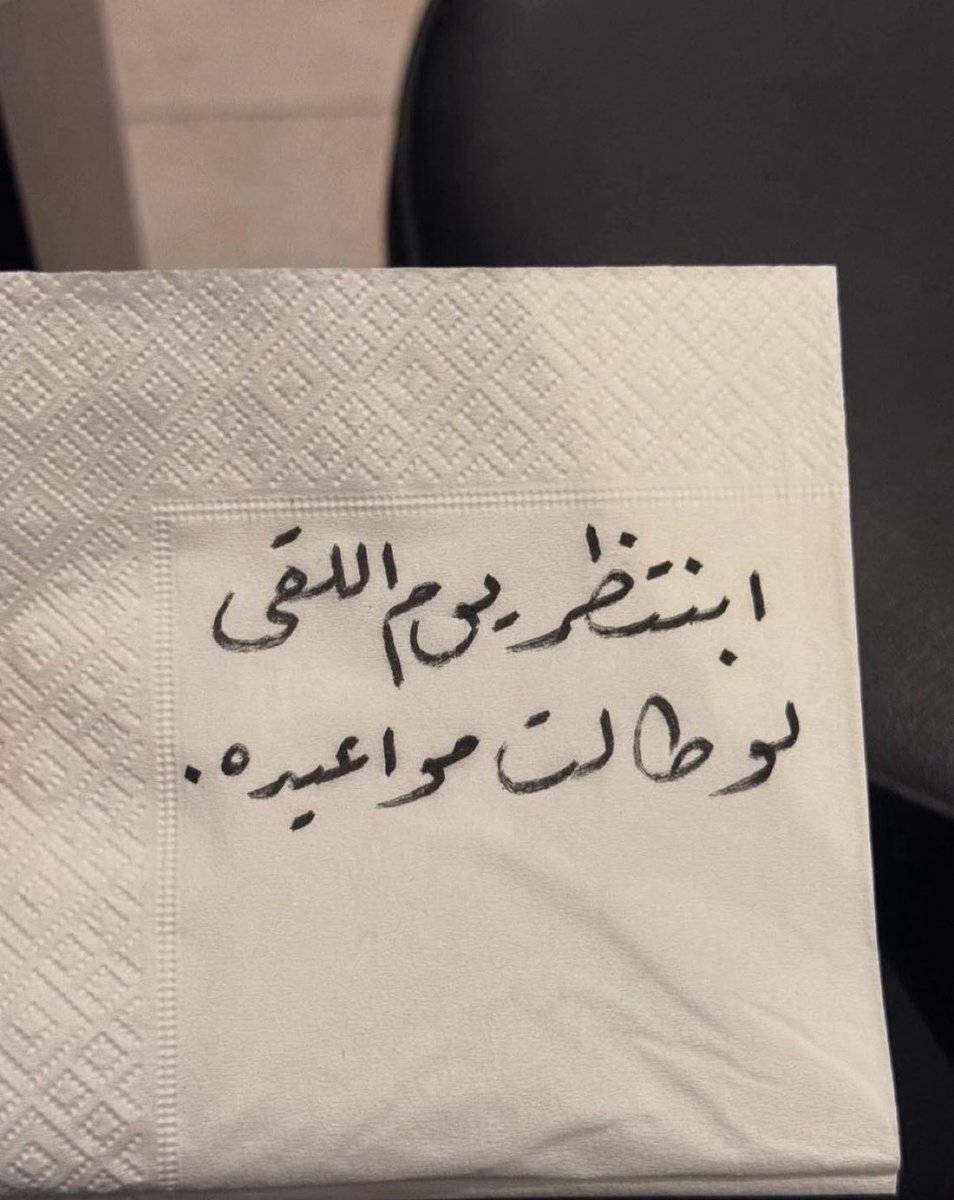 ابنتظر يوم اللقى
لو طالت مواعيده.